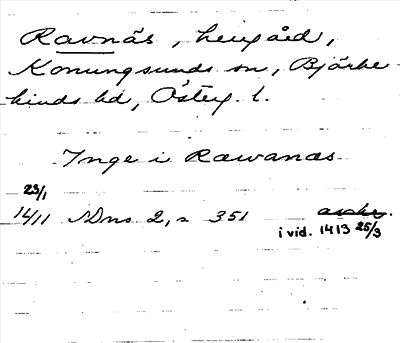 Ravnäs, herrgård,
Konungsunds sn, Björke-
kinds hd, Österg. l.
Inge i Rawanæs
23/1
1411 Dns 2, s 351
i vid. 1413 25/3